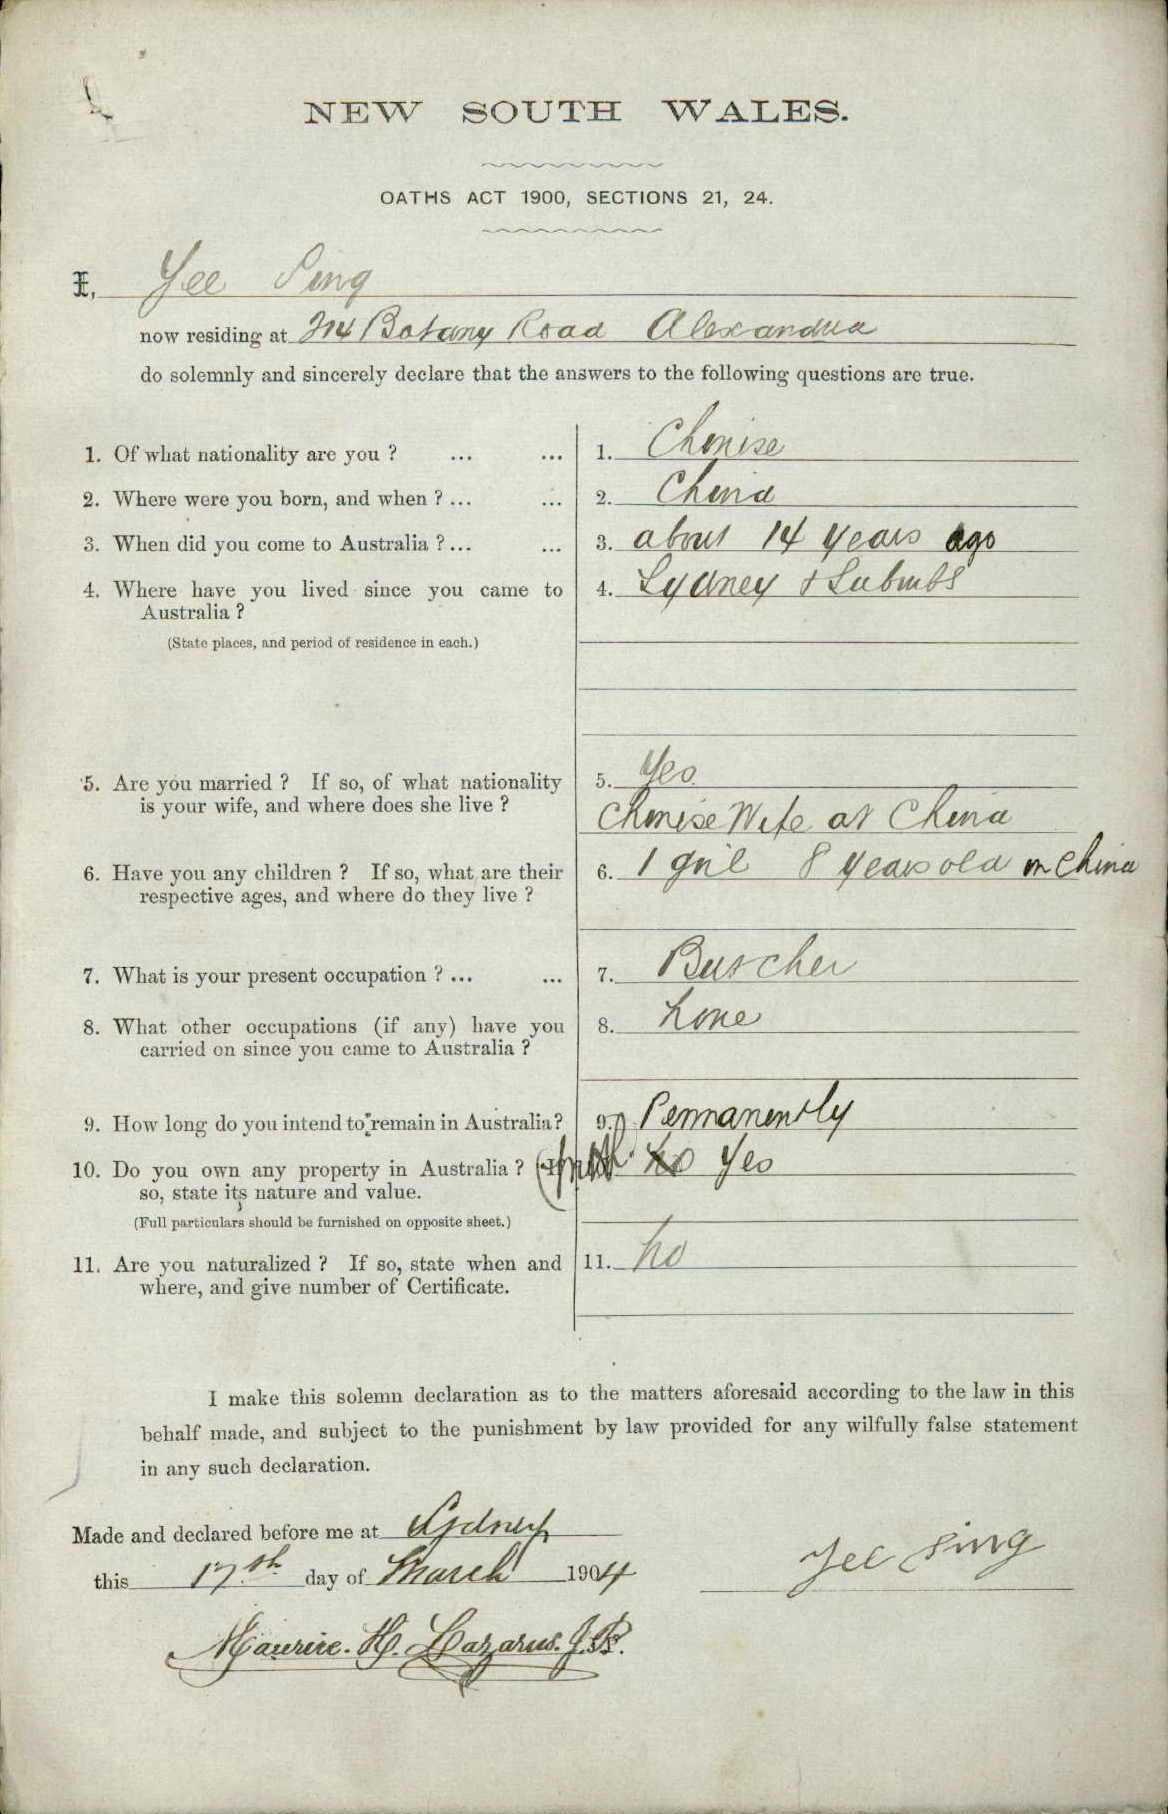 NEW SOUTH WALES.
OATHS ACT 1900, SECTIONS 21, 24.
I, Yee Sing
now residing at 214 Botany Road Alexandria
do solemnly and sincerely declare that the answers to the following questions are true.
1. Of what nationality are you ? ... ... 1. Chinise
2. Where were you born, and when ? ... ... 2. China
3. When did you come to Australia ? ... ... 3. about 14 years ago
4. Where have you lived since you came to 4. Sydney & Suburbs
Australia ?
(State places, and period of residence in each.)
5. Are you married ? If so, of what nationality 5. Yes
is your wife, and where does she live ? Chinise Wife at China
6. Have you any children ? If so, what are their 6. 1 girl 8 years old in China
respective ages, and where do they live ?
7. What is your present occupation ? ... ... 7. Butcher
8. What other occupations (if any) have you 8. None
carried on since you came to Australia ?
9. How long do you intend to remain in Australia? 9. Permanently
10. Do you own any property in Australia ? (If No Yes
so, state its nature and value.
(Full particulars should be furnished on opposite sheet.)
11. Are you naturalized ? If so, state when and 11. No
where, and give number of Certificate.
I make this solemn declaration as to the matters aforesaid according to the law in this
behalf made, and subject to the punishment by law provided for any wilfully false statement
in any such declaration.
Made and declared before me at Sydney
this 17th day of March 1904
Yee Sing
Maurice. H. Lazarus. J.P.